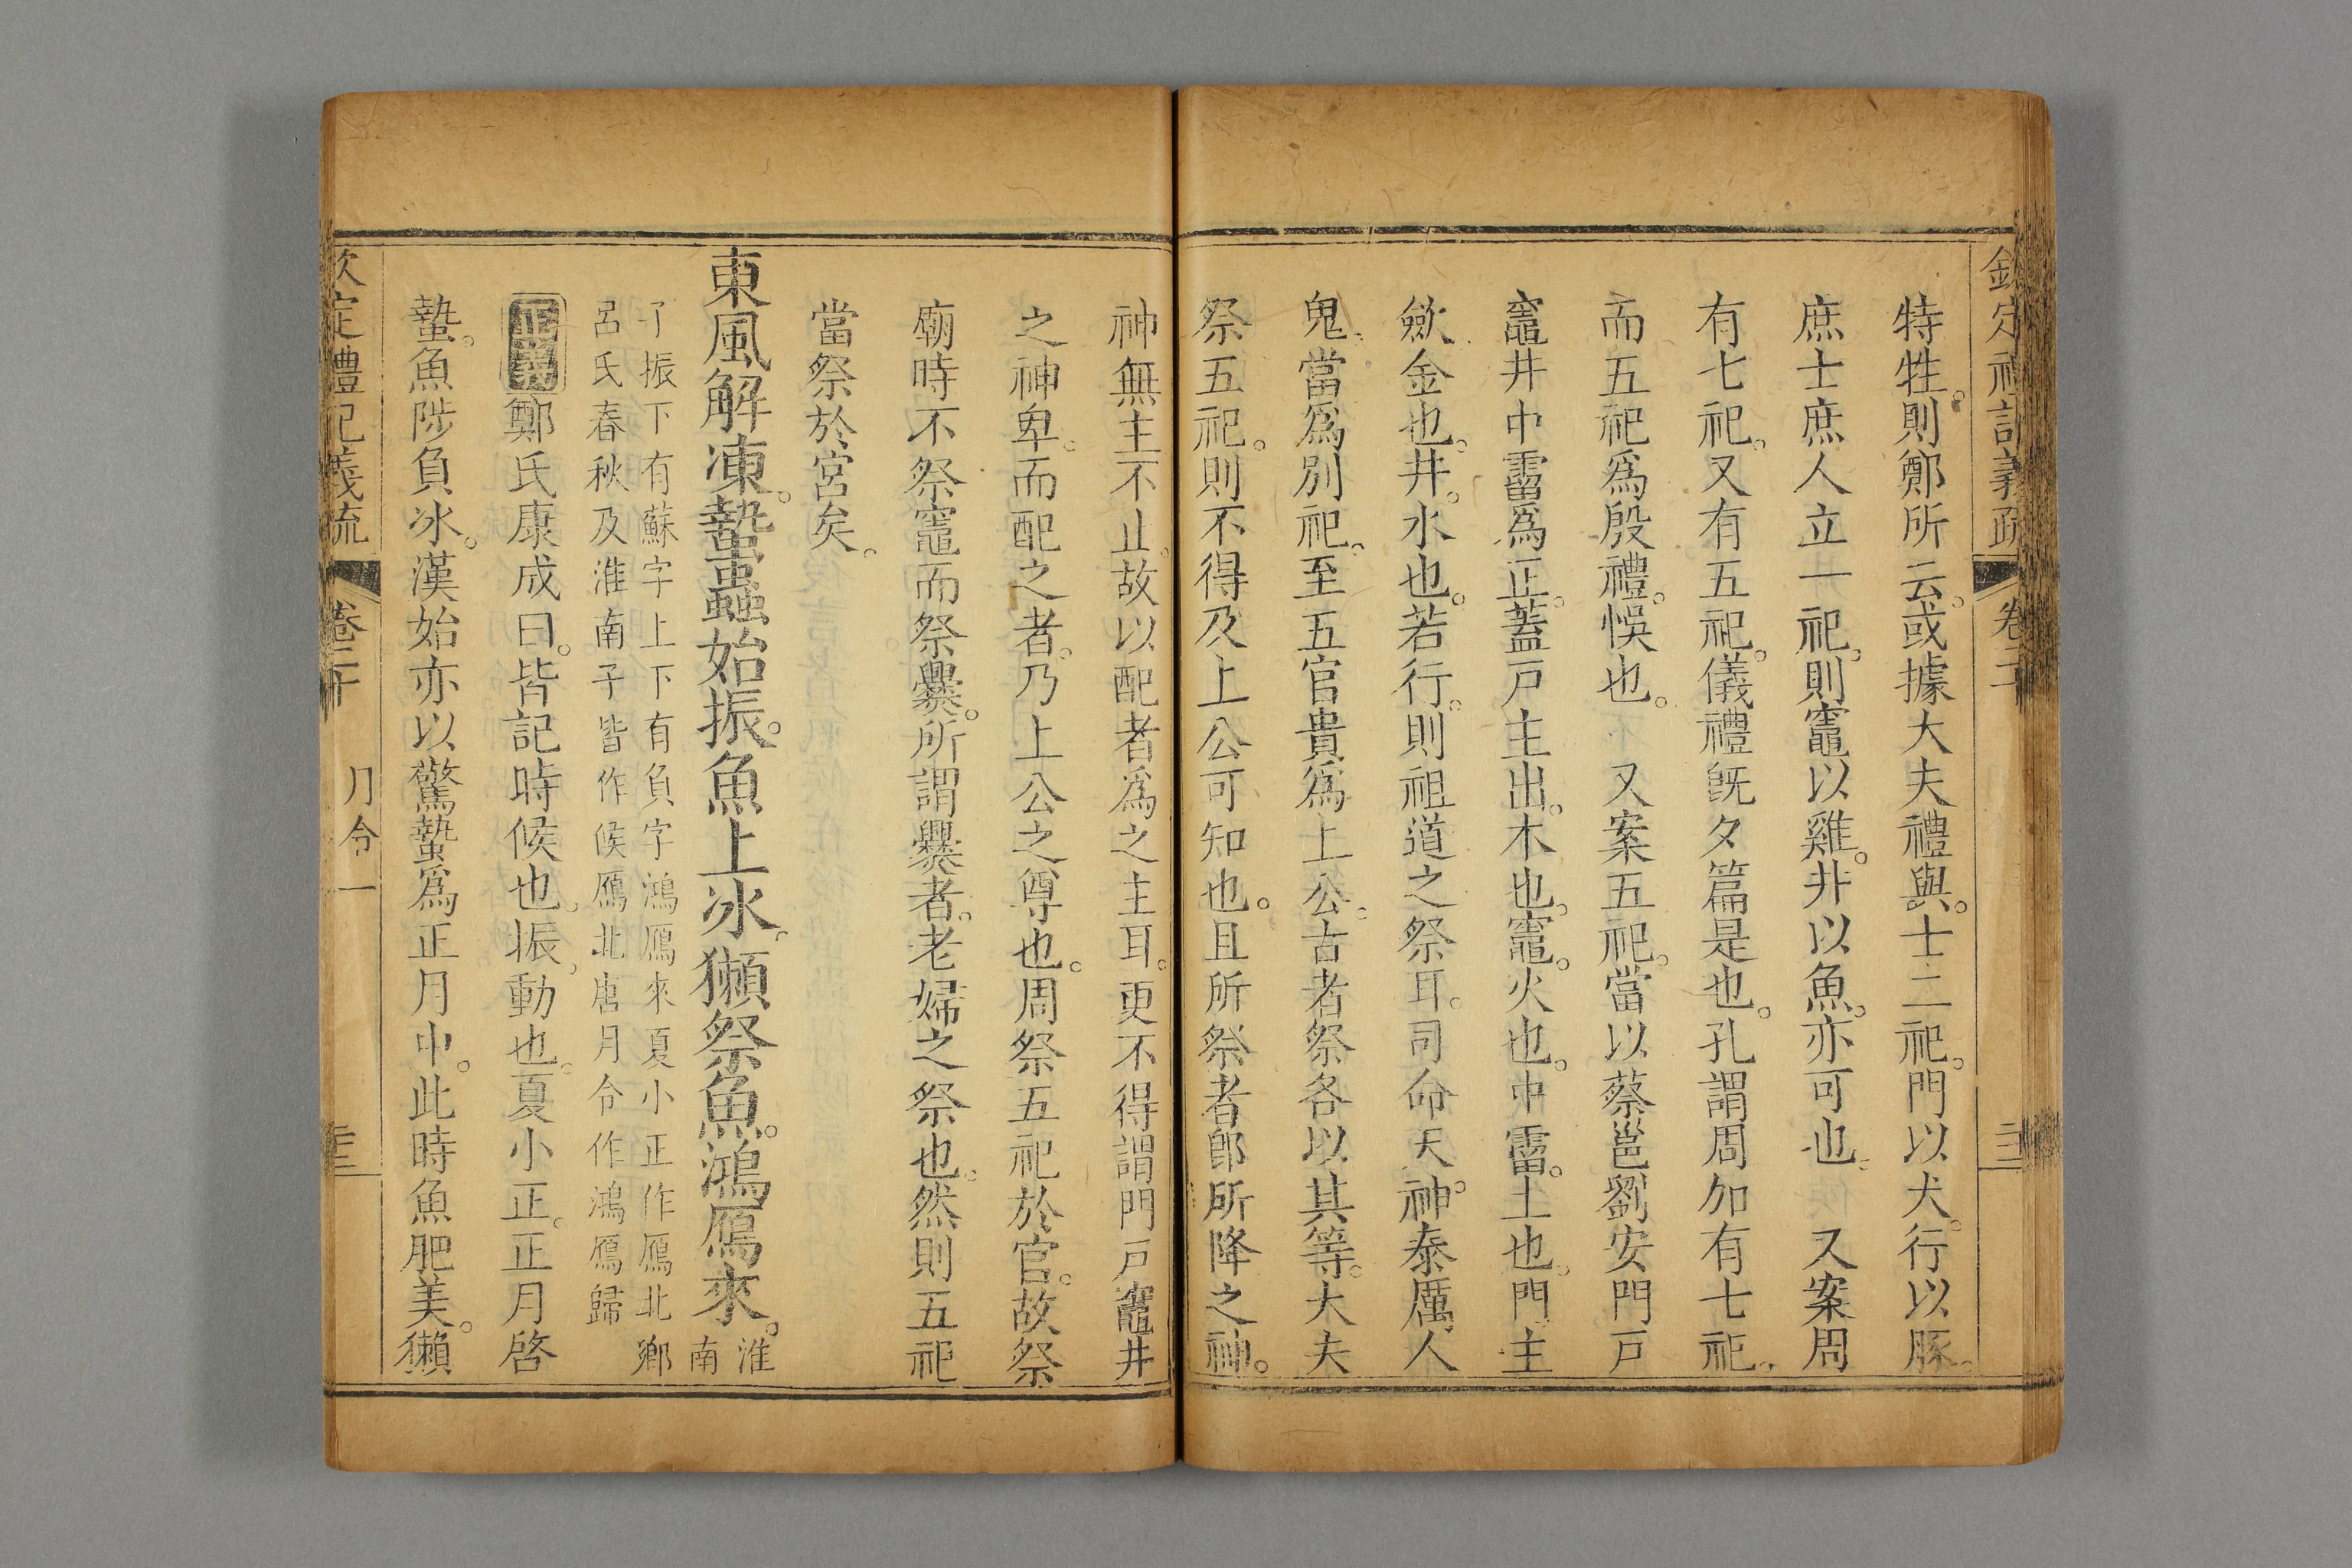 欽定禮記義疏 卷二十
特牲。則鄭所云。或據大夫禮與。士二祀。門以犬。行以豚。
庶士庶人立一祀。則竈以雞。井以魚。亦可也。 又案周
有七祀。又有五祀。儀禮旣夕篇是也。孔謂周加有七祀。
而五祀爲殷禮。悞也。 又案五祀。當以蔡邕劉安門戶
竈井中霤爲正。蓋戸主出。木也。竈。火也。中霤。土也。門主
歛金也。井。水也。若行。則祖道之祭耳。司命天神。泰厲人
鬼。當爲別祀。至五官貴爲上公。古者祭各以其等。大夫
祭五祀。則不得及上公可知也。且所祭者卽所降之神。
神無主不止。故以配者爲之主耳。更不得謂門戸竈井
之神卑。而配之者。乃上公之尊也。周祭五祀於官。故祭
廟時不祭竈而祭爨。所謂爨者。老婦之祭也。然則五祀
當祭於宮矣。
東風解凍。蟄蟲始振。魚上冰。獺祭魚。鴻鴈來。淮南
子振下有蘇字上下有負字鴻鴈來夏小正作鴈北鄉
呂氏春秋及淮南子皆作候鴈北唐月令作鴻鴈歸
正義 鄭氏康成曰。皆記時候也。振。動也。夏小正。正月啓
蟄。魚陟負冰。漢始亦以驚蟄爲正月中。此時魚肥美。獺
欽定禮記義疏 卷二十 月令一